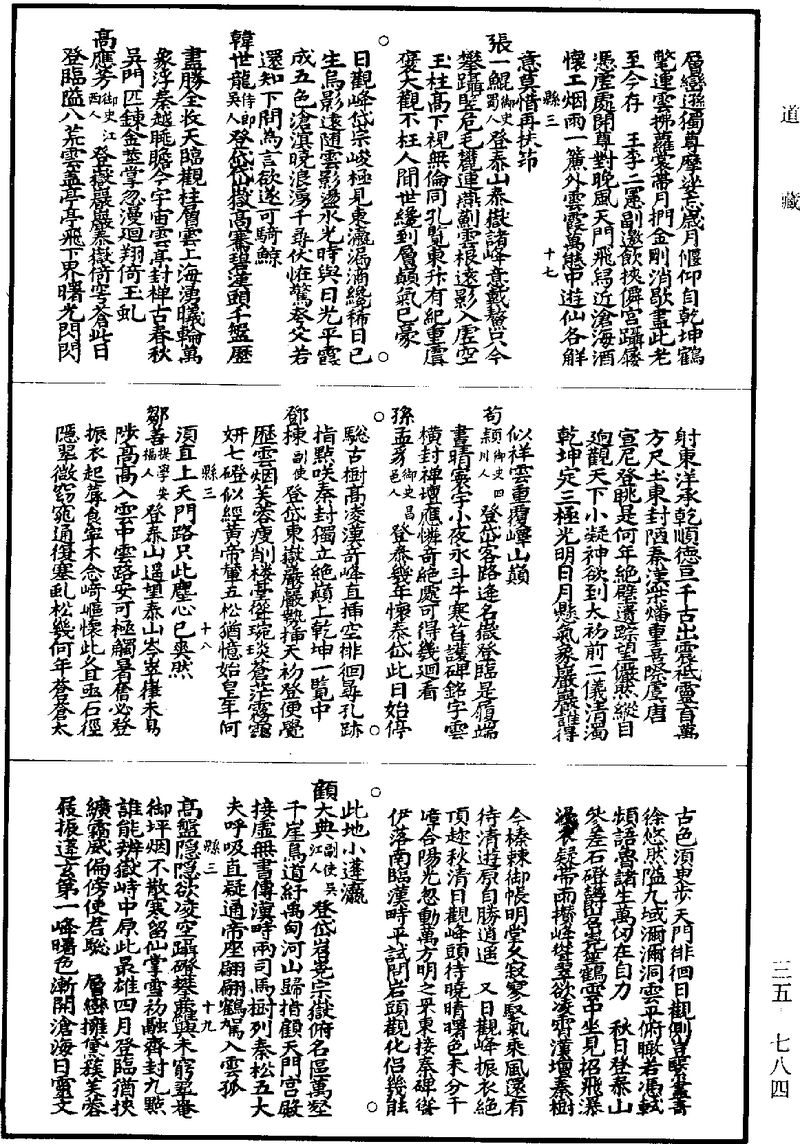 道藏
層巒遜獨尊摩娑忘歲月偃仰自乾坤鶴
氅連雲拂蘿裳帶月捫金剛消歇盡此老
至今存　王李二憲副邀飲挾僻宮躡屨
憑虛處開尊對晚風天門飛舄近滄海酒
懷工烟雨一簾外雲霞萬態中遊仙各解
縣三　十七
意莫惜再扶筇
張一鯤御史蜀人登泰山泰嶽諸峰意戴鰲只今
攀躡豎危毛欃連燕薊雲根遠影入虛空
玉柱高下視無倫同孔覽東升有紀重虞
褒大觀不枉人間世纔到層顛氣已豪
○日觀峰岱宗峻極見東瀛漏滴纔稀日已○
生烏影遠隨雲影盪水光時與日光平霞
成五色滄溟曉浪湧千尋伏怪驚父若
還知下問為言欲遂可騎鯨
韓世龍侍郎吳人登岱岱嶽高騫碧漢頭千盤歷
盡勝全收天臨觀柱層雲上海湧曦輪萬
象浮秦越眺瞻今宇宙雲亭封禪古春秋
吳門匹練金莖掌忽漫迴翔倚玉虬
高應芳御史江西人登嶽巖巖泰嶽倚穹蒼此日
登臨隘八荒雲蓋亭亭飛下界曙光閃閃
射東洋承乾順德亘千古出震祗靈首萬
方尺土東封陋秦漢柴燔重喜際虞唐
宣尼登眺是何年絕壁遺踪望儼然縱目
迥觀天下小凝神欲到太初前二儀清濁
乾坤定三極光明日月懸氣象巖巖誰得
似祥雲重覆嶂山巔
荀穎御史四川人登岱客路逢名嶽登臨是履端
晝晴寰宇小夜永斗牛寒苔護碑銘字雲
橫封禪壇應憐奇絕處可得幾迴看
○孫孟御史昌邑人登泰幾年懷泰岱此日始停
驄古樹高凌漢奇峰直插空徘徊尋孔跡○
指點咲秦封獨立絕巔上乾坤一覽中
鄧棟副使登岱東嶽巖巖勢插天初登便覺
歷雲烟芙蓉瘦削樓臺聳琬琰蒼茫霧靄
妍七磴似經黃帝輦五松猶憶始皇年何
縣三　十八
須直上天門路只此塵心已爽然
鄒善安福人登泰山遥望泰山岑崒嵂未易
陟高高入雲中雲路安可極觸暑奮必登
振衣起蓐食寧木念崎嶇懷此久且亟石徑
隱翠微窈窕通復塞虬松幾何年蒼蒼太
古色須臾步天門徘徊日觀側
徐悠然隘九域瀰瀰洞雲平俯瞰若憑軾
頻語魯諸生萬仞在自力　秋日登泰山
參差石磴鶴雲中坐見招飛瀑
疑帶雨攢峰聳翠欲凌霄漢壇秦樹
今榛棘御帳明堂久寂寥馭氣乘風還有
待清遊原自勝逍遙　又日觀峰振衣絕
頂趂秋清日觀峰頭待曉晴曙色未分千
嶂合陽光忽動萬方明之罘東接秦碑
伊落南臨漢畤平試問岩頭觀化侶幾能
○此地小蓬瀛○
顧大典副使吳江人登岱岧嶤宗嶽俯名區萬壑
千崖鳥道紆禹甸河山歸指顧天門宮殿
接虛無書傳漢時兩司馬樹列秦松五大
夫呼吸直疑通帝座翩翩鶴駕入雲孤
縣三　十九
高盤隱隱欲凌空躡磴攀蘿興未窮翠菴
御坪烟不散寒留仙掌雪初融齊封九點
誰能辨嶽峙中原此最雄四月登臨猶挾
纊霜威偏傍使君驄　層巒擁黛簇芙蓉
屐振蓬玄第一峰曙色漸開滄海日靈文
三五　七八四